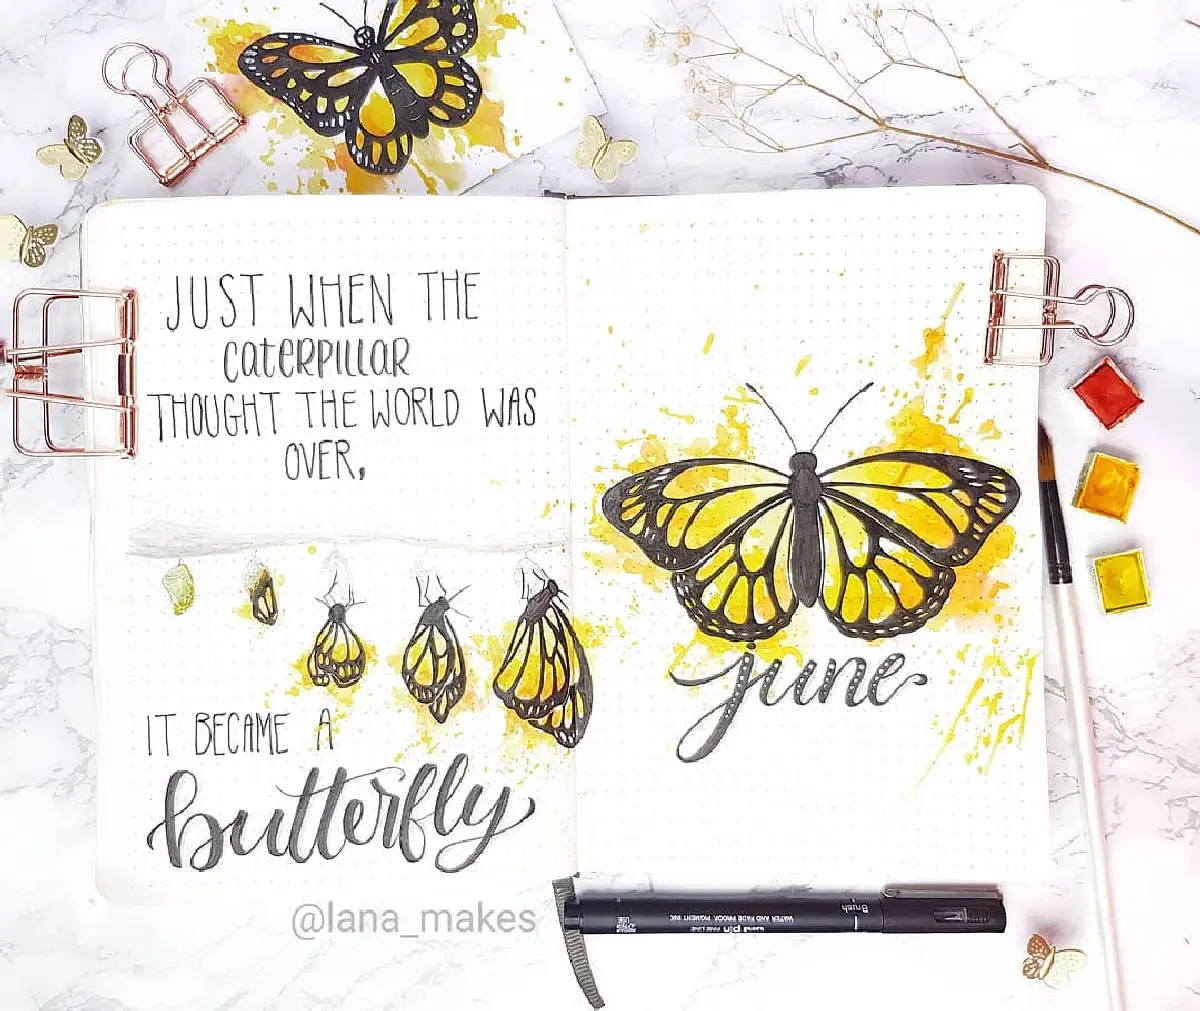 JUST WHEN THE
caterpillar
THOUGHT THE WORLD WAS
OVER,
IT BECAME A
butterfly
june
@lana_makes
Brush
uni pin FINE LINE
WATER AND FADE PROOF, PIGMENT INK